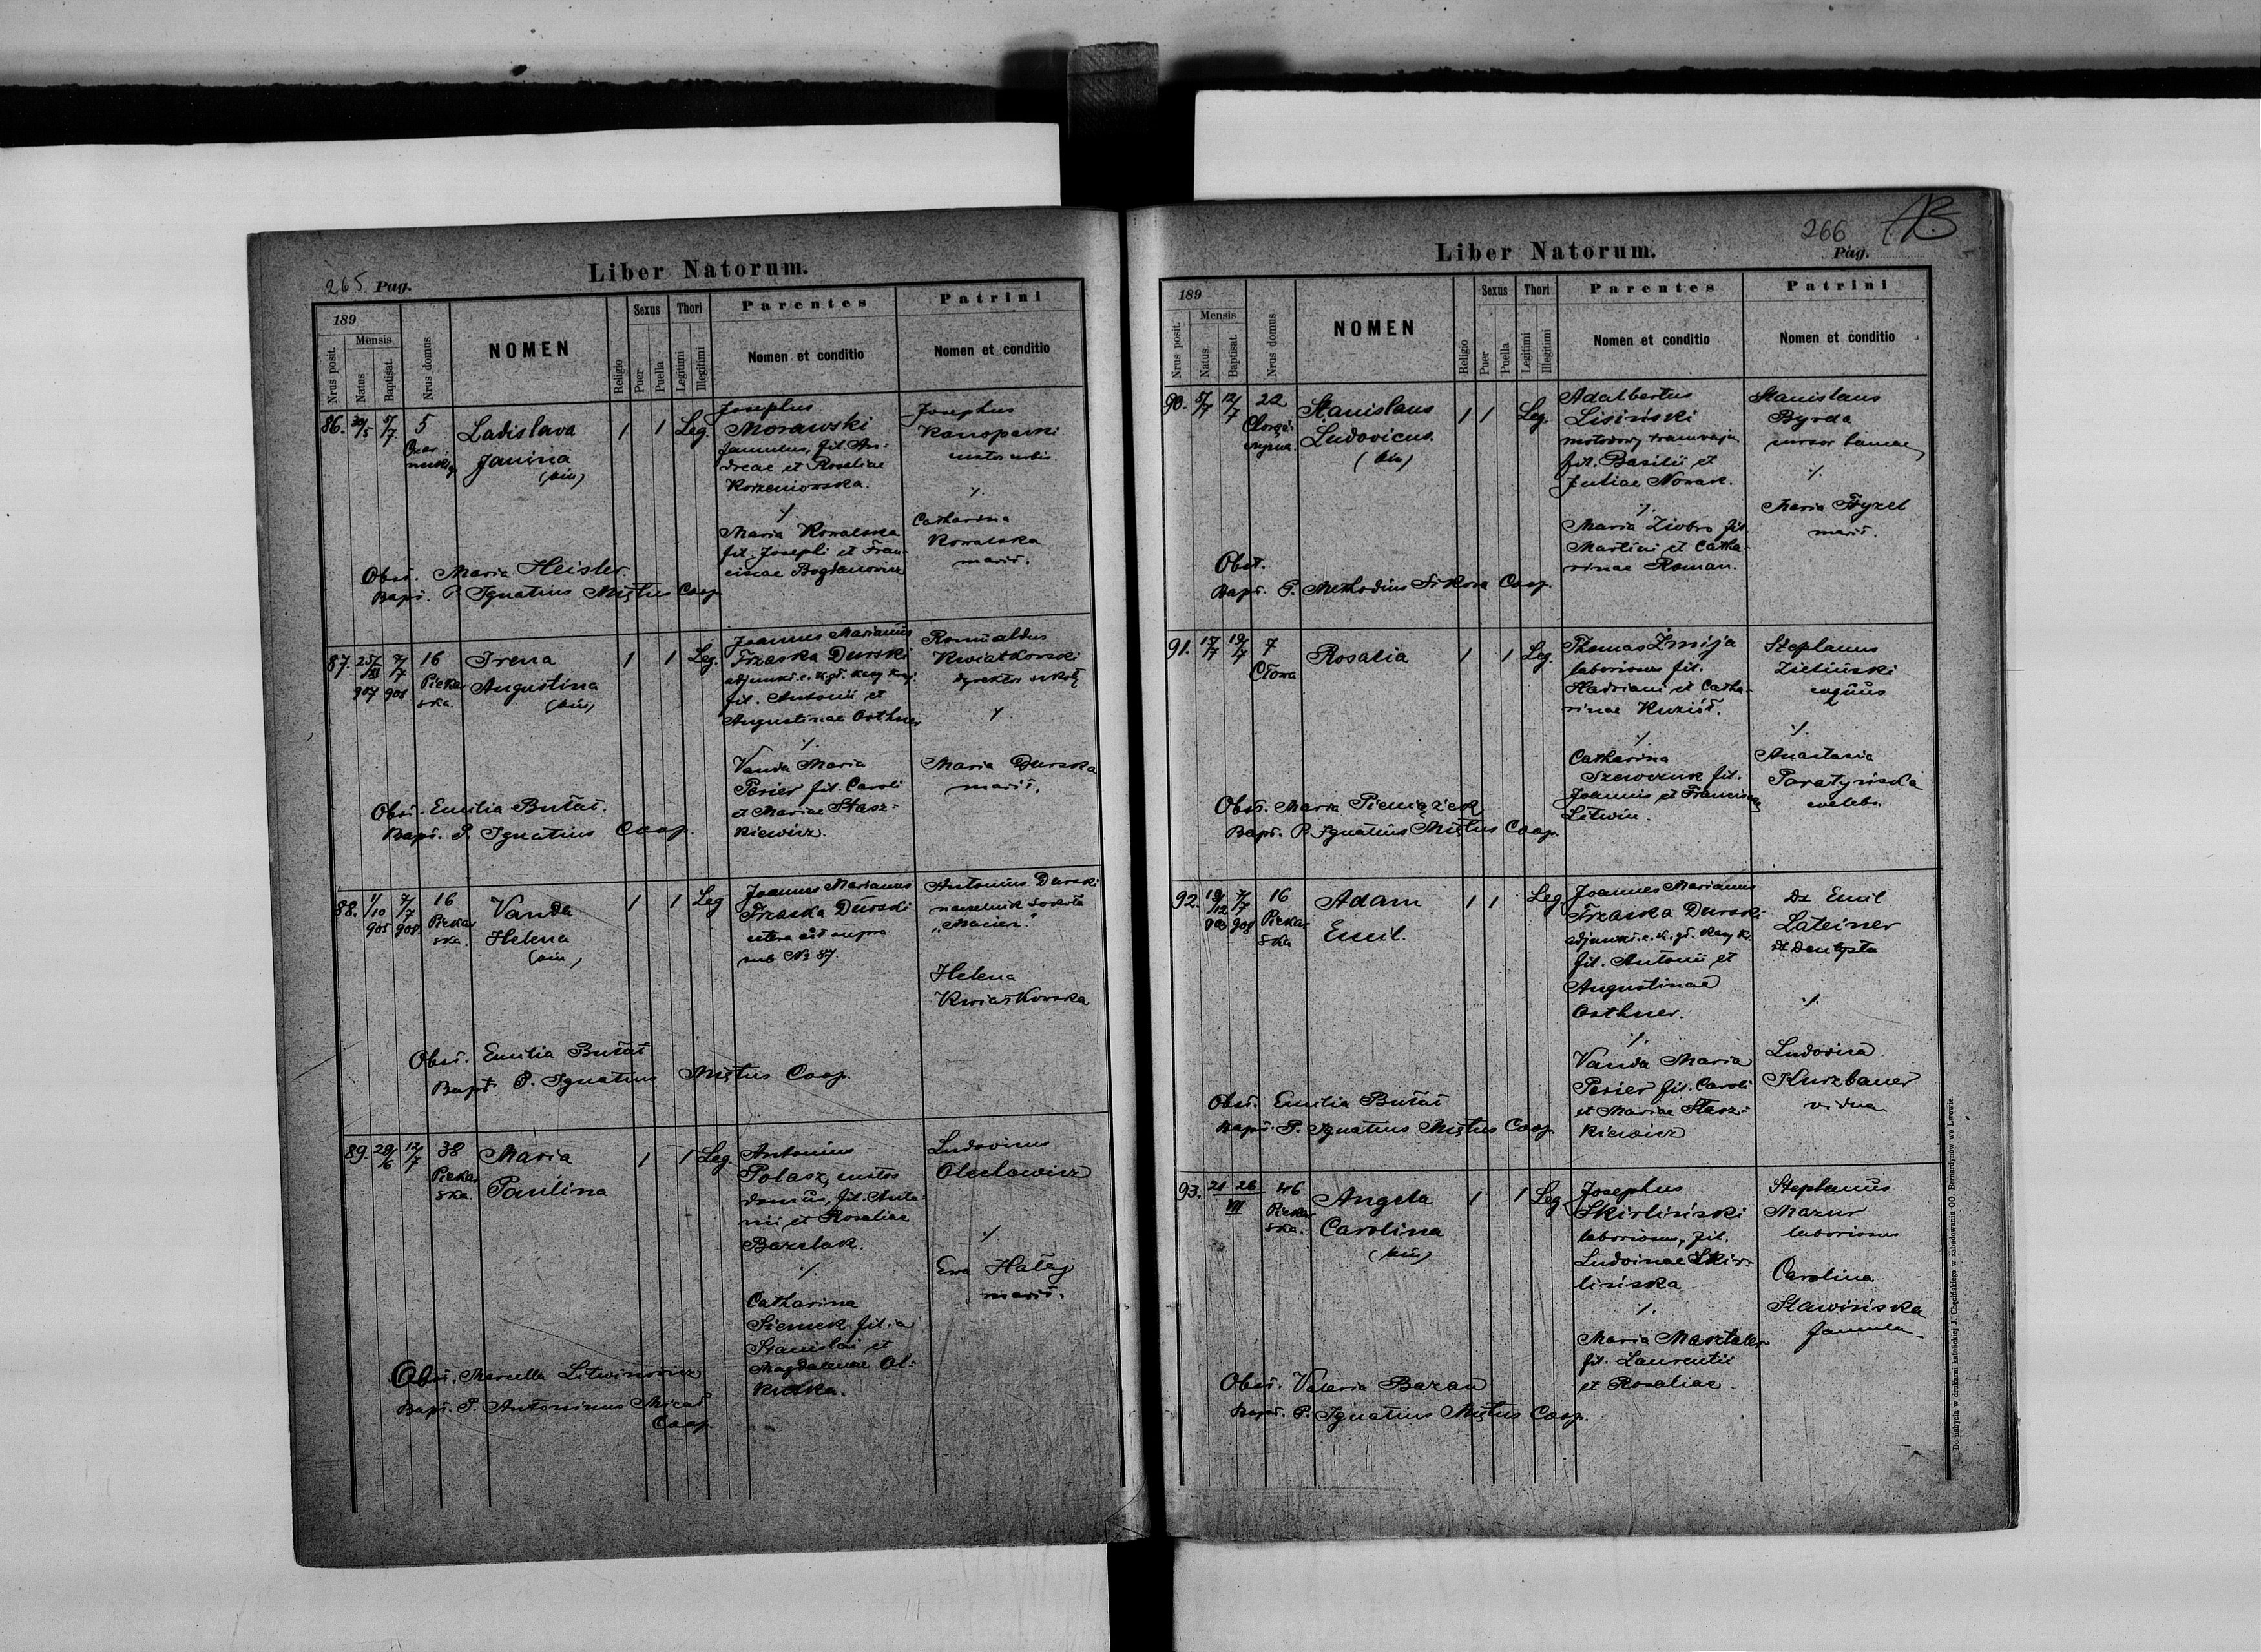 265. Pag.
Liber Natorum.
189
Nrus posit.
Mensis
Natus
Baptisat.
Nrus domus
NOMEN
Religio
Sexus
Puer
Puella
Thori
Legitimi
Illegitimi
Parentes
Nomen et conditio
Patrini
Nomen et conditio
86. 5/7 5
Ladislava
Janina
(bin)
1 1 Leg.
Josephus
Morawski
famulus, fil. An-
dreae et Rosaliae
Korzeniowska.
./.
Maria Kowalska
fil. Josephi et Fran-
ciscae Bogdanowicz
Josephus
Konopacki
./.
Catharina
Kowalska
marit.
Obst. Maria Heisler.
Bapt. P. Ignatius Miętus Coop.
87. 25/XI 907 7/7 908 16
Piekar
ska.
Irena
Augustina
(bin)
1 1 Leg.
Joannes Marianus
Trzaska Durski
fil. Antonii et
Augustinae Orthner
./.
Vanda Maria
Perier fil. Caroli
et Mariae Stasz-
kiewicz.
Romualdus
Kwiatkowski
dyrektor szkoły
./.
Maria Durska
marit.
Obst. Emilia Butat.
Bapt. P. Ignatius Coop.
88. 1/10 905 7/7 908 16
Piekar
ska.
Vanda
Helena
(bin)
1 1 Leg
Joannes Marianus
Trzaska Durski
cetera ut supra
sub № 87.
Antonius Durski
naczelnik Sokoła
„Macierz"
Helena
Kwiatkowska
Obst. Emilia Butat
Bapt. P. Ignatius Miętus Coop.
89. 29/6 12/7 38
Piekar
ska.
Maria
Paulina
1 1 Leg.
Antonius
Polasz, custos
domus, fil. Anto-
nii et Rosaliae
Bazelak.
./.
Catharina
Siemek filia
Stanislai et
Magdalenae Ol-
Ludovicus
Olechowicz
./.
Eva Hałaj
marit.
Obst. Marcella Litwinowicz
Bapt. P. Antoninus
Coop.
266
Pag.
Liber Natorum.
189
Nrus posit.
Mensis
Natus
Baptisat.
Nrus domus
NOMEN
Religio
Sexus
Puer
Puella
Thori
Legitimi
Illegitimi
Parentes
Nomen et conditio
Patrini
Nomen et conditio
90. 5/7 12/7 22
Stanislaus
Ludovicus.
(bin)
1 1 Leg.
Adalbertus
Lisiński
motorowy tramwaju
fil. Basilii et
Juliae Nowak.
./.
Maria Ziobro fil.
Martini et Catha-
rinae Roman.
Stanislaus
Byrda
./.
Maria Fryzel
marit.
Obst.
Bapt. P. Methodius Sikora Coop.
91. 17/7 19/7 7
Cłowa
Rosalia
1 1 Leg.
Thomas Żmija
laboriosus fil.
Hadriani et Catha-
rinae Kuziół.
./.
Catharina
Szewczuk fil.
Joannis et Franciscae
Litwin.
Stephanus
Zieliński
./.
Anastasia
Paratyńska
caelebs.
Obst. Maria Pieniążek
Bapt. P. Ignatius Miętus Coop.
92. 19/12 903 7/7 908 16
Piekar
ska
Adam
Emil.
1 1 Leg
Joannes Marianus
Trzaska Durski
fil. Antonii et
Augustinae
Orthner.
./.
Vanda Maria
Perier fil. Caroli
et Mariae Stasz-
kiewicz
Dr Emil
Lateiner
Dentysta
./.
Ludovica
Kurzbauer
vidua
Obst. Emilia Butat
Bapt. P. Ignatius Miętus Coop.
93. 21 26 VII 46
Piekar
ska.
Angela
Carolina
(bin)
1 1 Leg
Josephus
Skirliński
laboriosus, fil.
Ludvinae Skir-
lińska
./.
Maria Masztaler
fil. Laurentii
et Rosaliae.
Stephanus
Mazur
laboriosus
Carolina
Sławińska
famula
Obst. Valeria Bazan
Bapt. P. Ignatius Miętus Coop.
Do nabycia w drukarni katolickiej J. Chęcińskiego w zabudowaniu OO. Bernardynów we Lwowie.